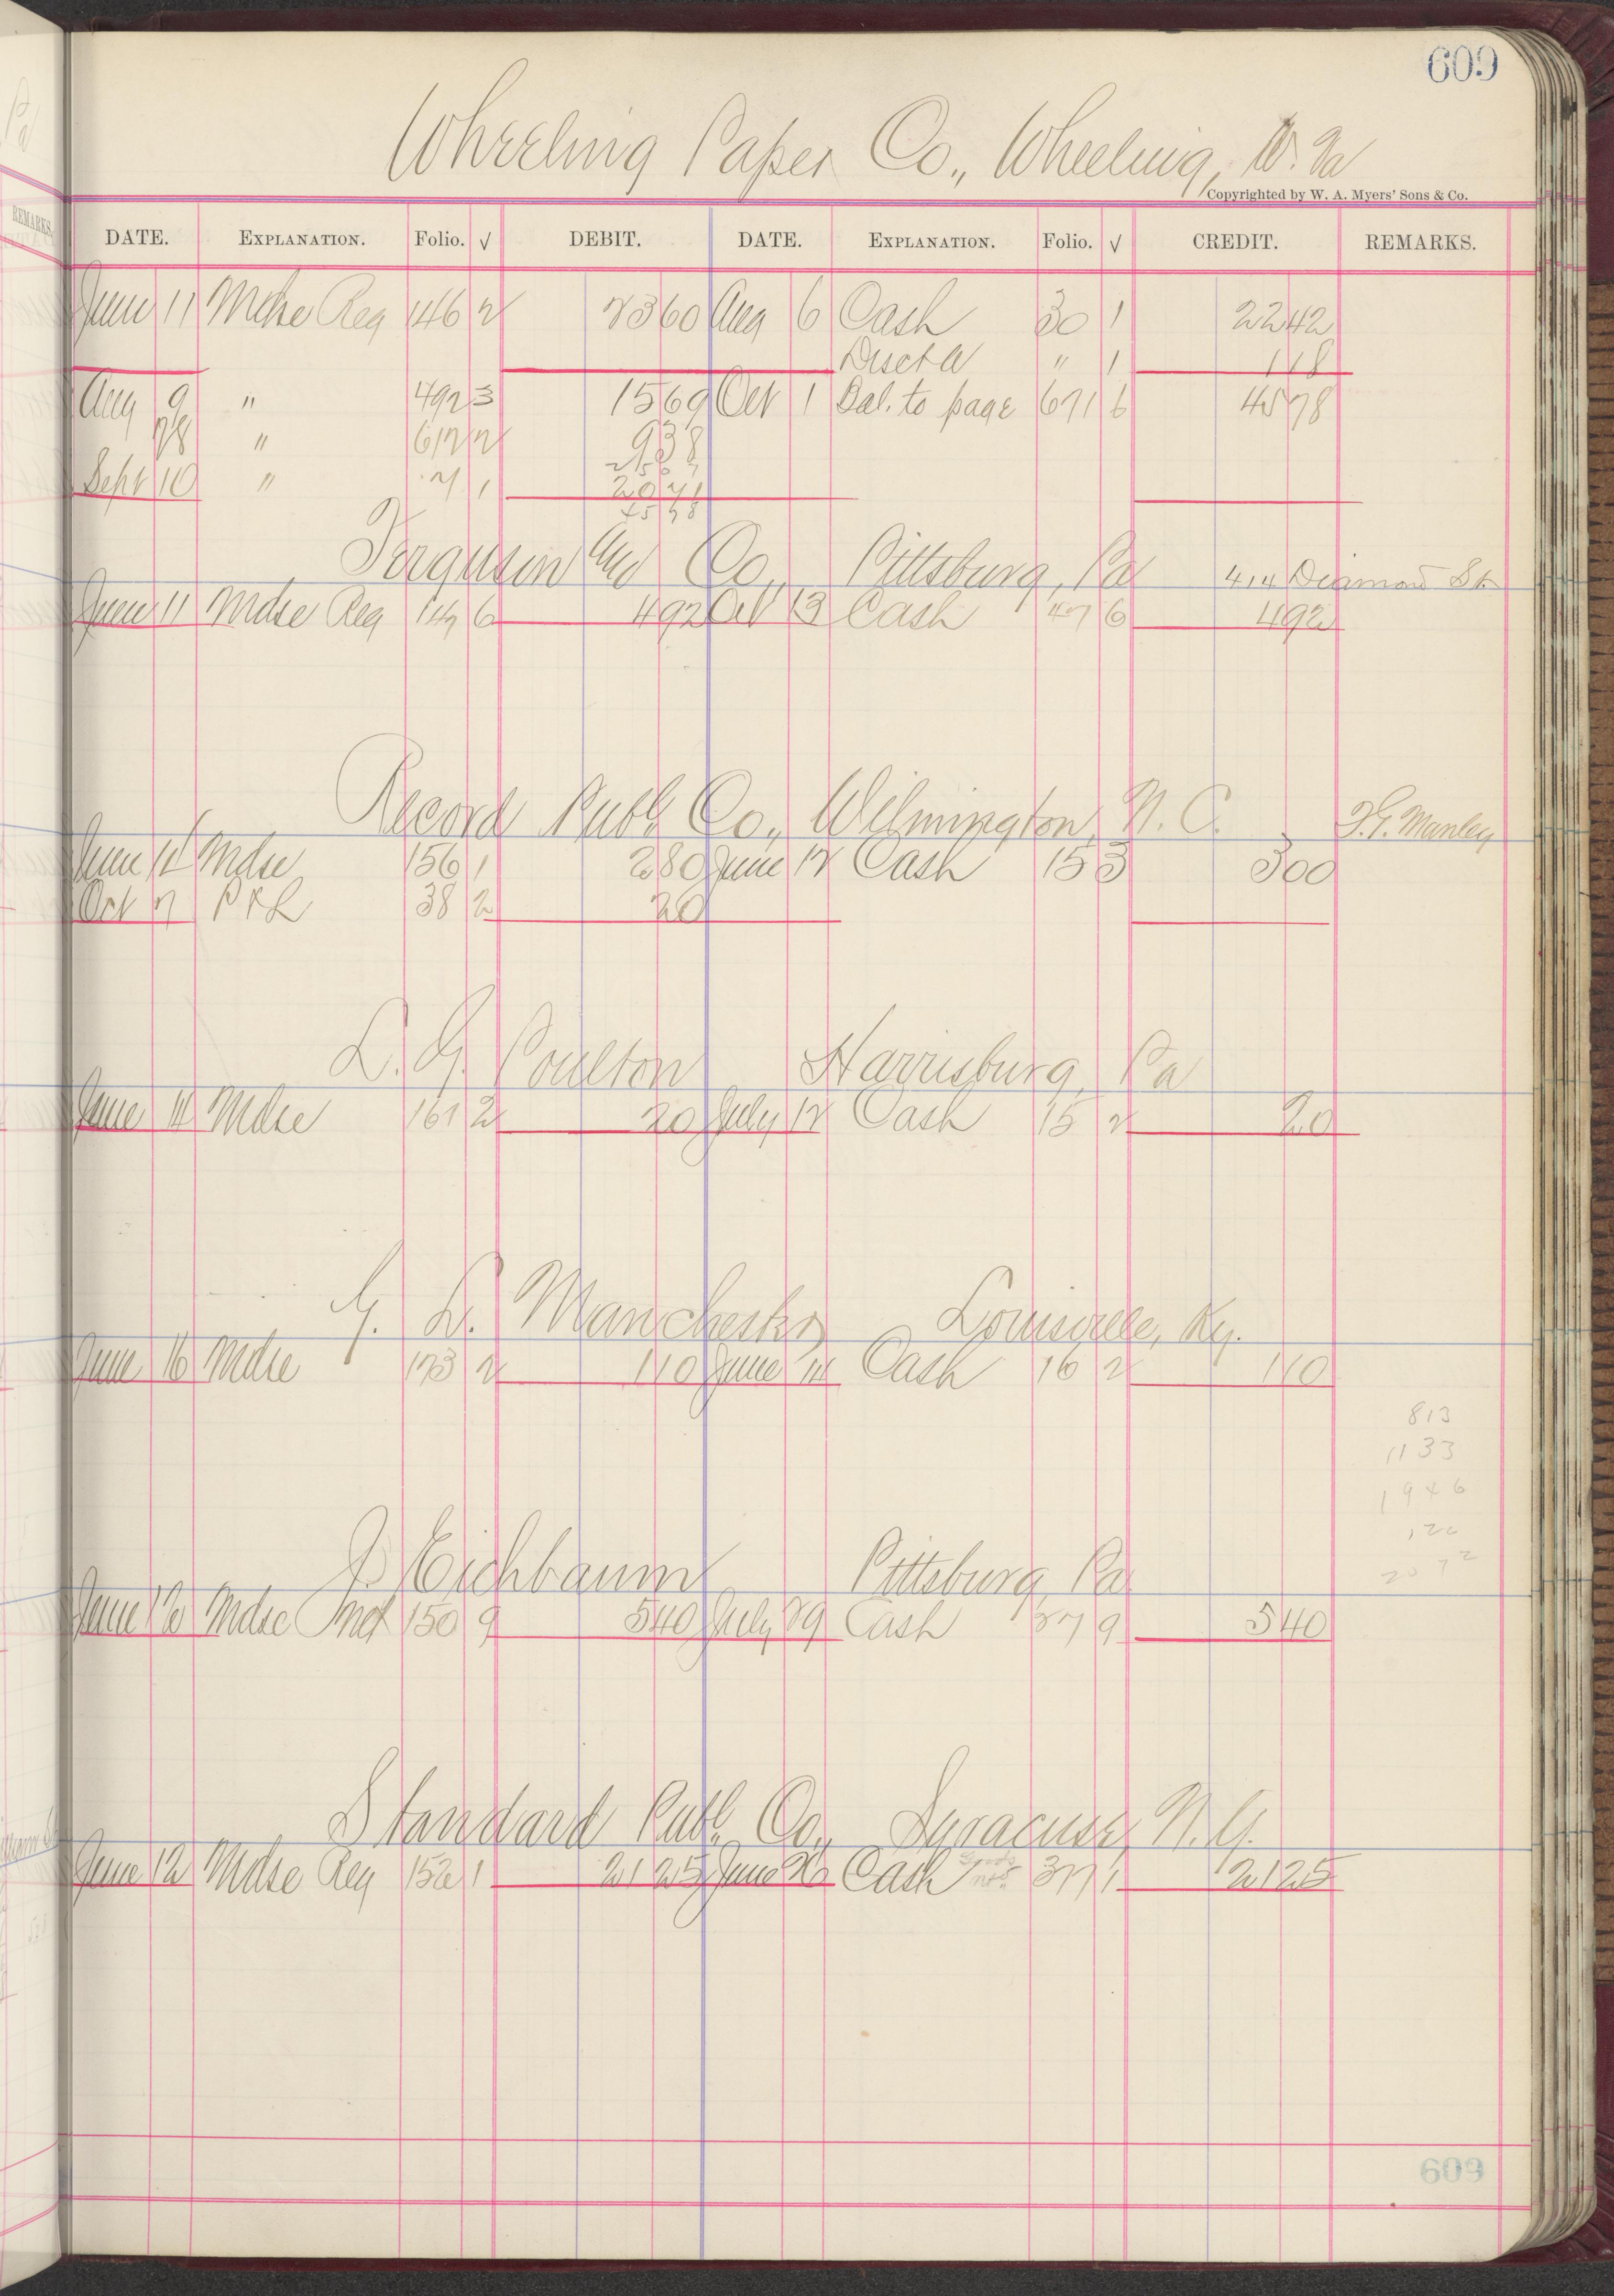 609
Wheeling Paper Co., Wheeling, W. Va
Copyrighted by W. A. Myers' Sons & Co.
DATE. EXPLANATION. Folio. √ DEBIT. DATE. EXPLANATION. Folio. √ CREDIT. REMARKS.
June 11 Mdse Reg 146 2 23 60 Aug 6 Cash 30 1 22 42
Disct a " 1 1 18
Aug 9 " 492 3 15 69 Oct 1 Bal. to page 671 6 45 78
28 " 612 2 9 38
25 07
Sept 10 " 7 1 20 71
45 78
Ferguson and Co., Pittsburg, Pa 414 Diamond St.
June 11 Mdse Reg 147 6 4 92 Oct 13 Cash 47 6 4 92
Record Publ. Co., Wilmington, N. C. F. G. Manley
June 12 Mdse 156 1 2 80 June 12 Cash 15 3 3 00
Oct 7 38 2 20
L. G. Poulton Harrisburg, Pa
June 14 Mdse 161 2 20 July 12 Cash 15 2 20
G. W. Manchester Louisville, Ky.
June 16 Mdse 173 2 1 10 June 14 Cash 16 2 1 10
813
1133
1946
J. Eichbaum Pittsburg, Pa
June 12 Mdse Ind 150 9 5 40 July 29 Cash 27 9 5 40
Standard Publ. Co., Syracuse, N. Y.
June 12 Mdse Reg 152 1 21 25 June 26 Cash 377 1 21 25
609